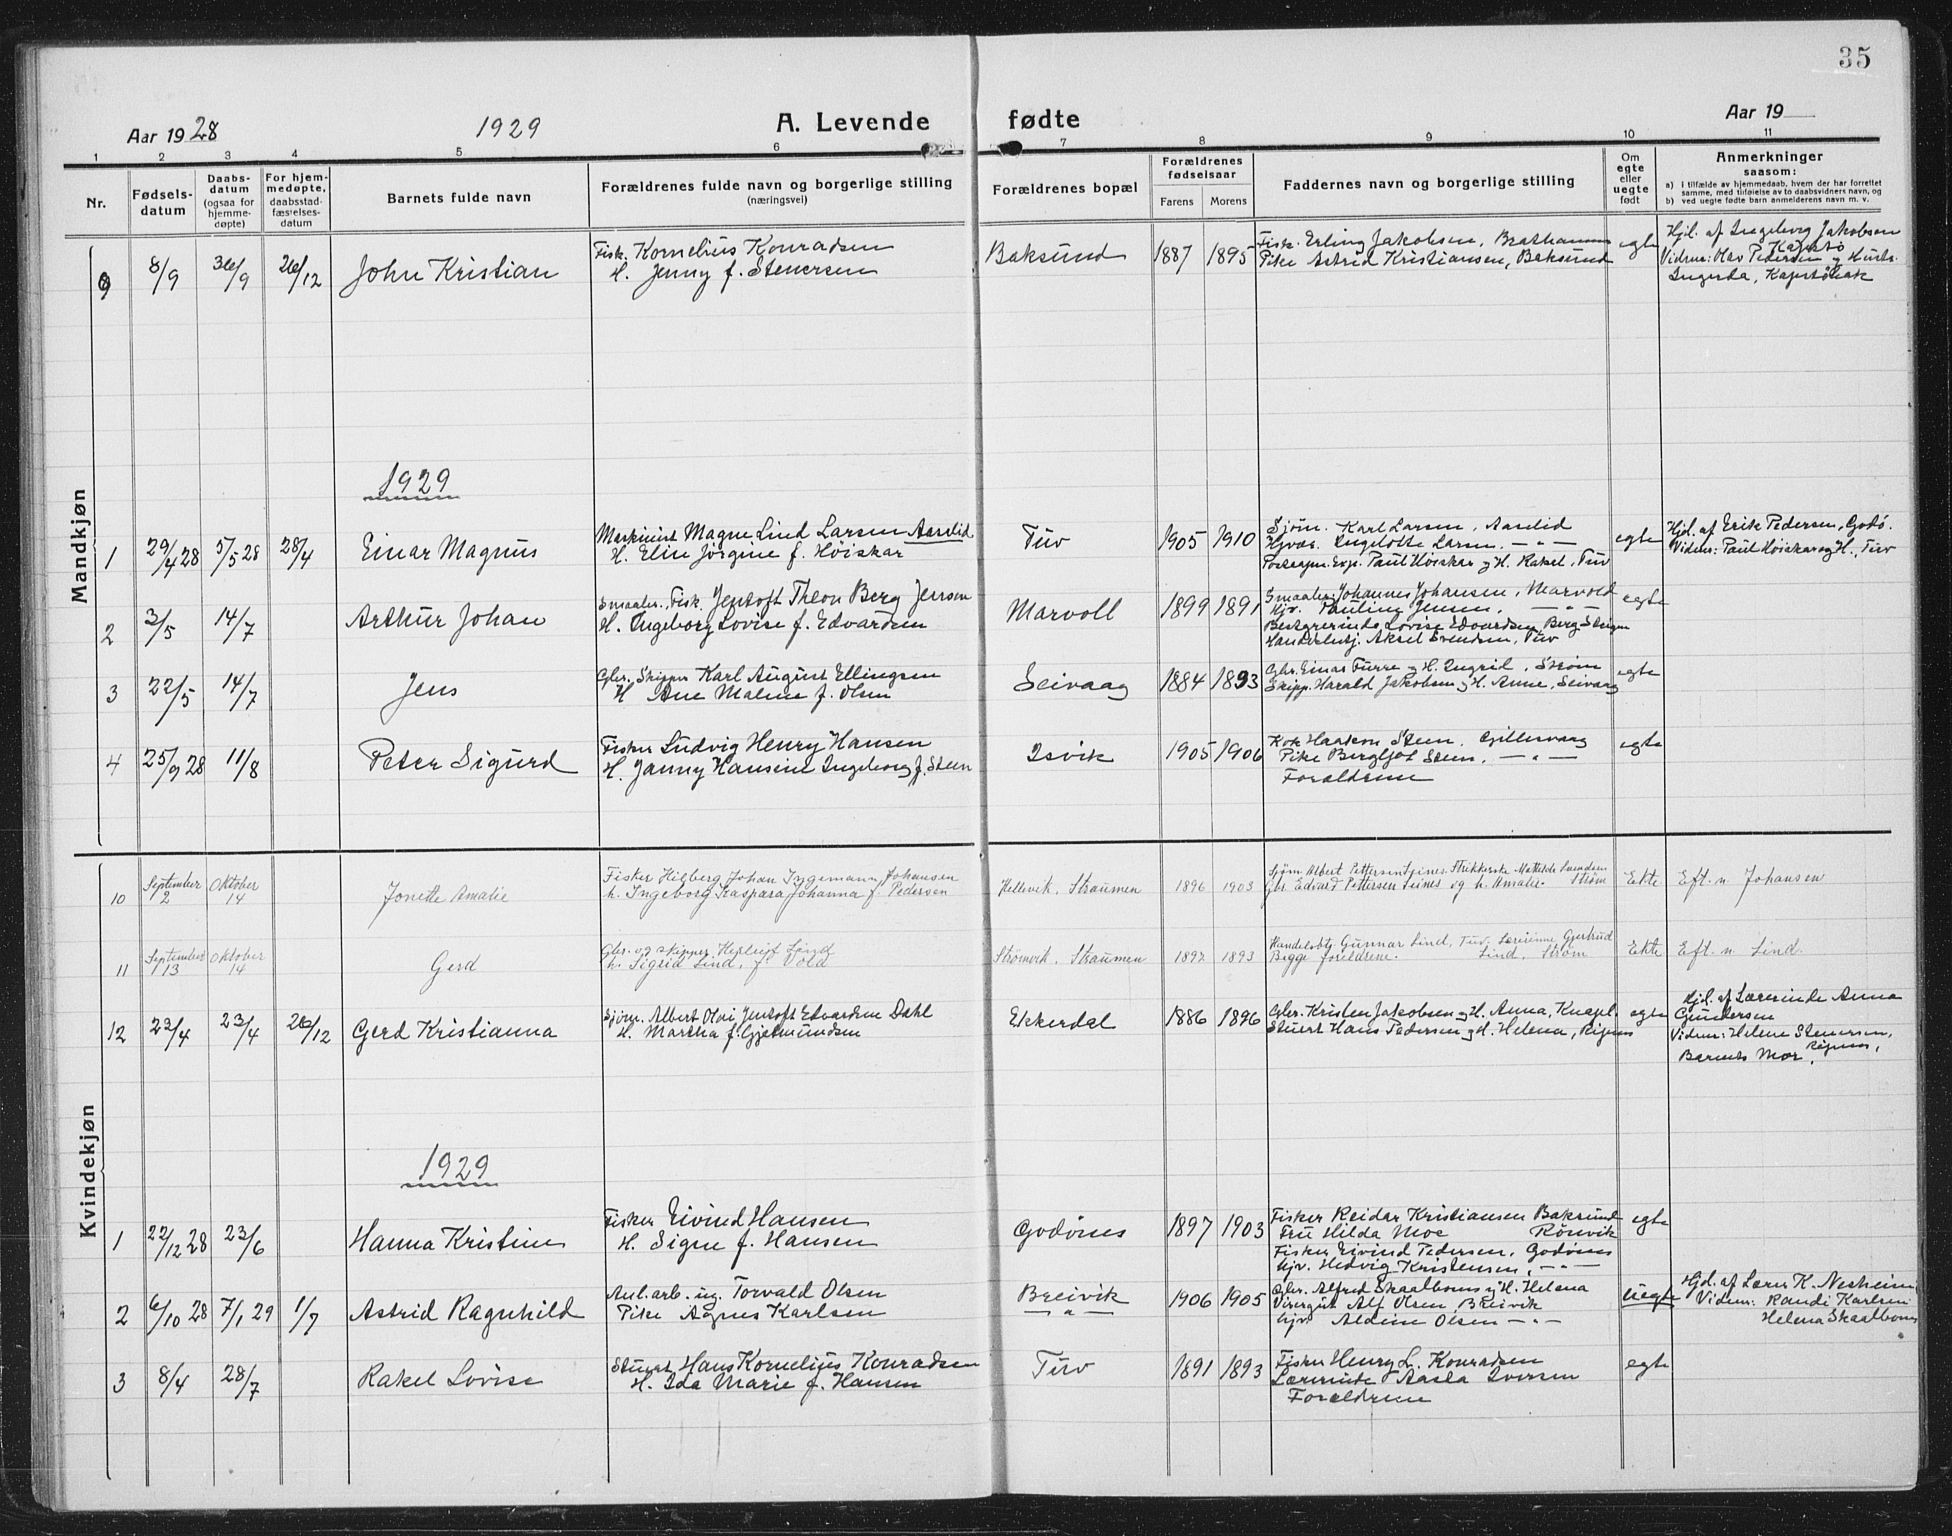 35
Aar 1928
1929
A. Levende fødte
Aar 19
1 2 3 4 5 6 7 8 9 10 11
Nr.
Fødselsdatum
Daabsdatum (ogsaa for hjemmedøpte)
For hjemmedøpte, daabsstadfæstelsesdatum
Barnets fulde navn
Forældrenes fulde navn og borgerlige stilling (næringsvei)
Forældrenes bopæl
Forældrenes fødselsaar
Farens Morens
Faddernes navn og borgerlige stilling
Om egte eller uegte født
Anmerkninger saasom:
a) i tilfælde av hjemmedaab, hvem der har forrettet samme, med tilføielse av to daabsvidners navn, og
b) ved uegte fødte barn anmelderens navn m. v.
Mandkjøn
9 8/9 30/9 26/12 John Kristian
Fisk. Kornelius Konradsen
H. Jenny f. Stenersen
Baksund 1887 1895
Fisk. Erling Jakobsen,
Pike Astrid Kristiansen, Baksund
egte
Hjd. af Ingeborg Jakobsen
Vidner: Olav Pedersen og
Ingerda,
1929
1 29/4 28 5/5 28 28/4 Einar Magnus
Maskinist Magne Lind Larsen Aaselid
H. Elin Jörgine f. Höiskar
Tuv 1905 1910
Sjöm. Karl Larsen, Aaselid
Ingelotte Larsen. — " —
Postaapn. Exp. Paul Höiskar og H. Rakel, Tuv
egte
Hjd. af Erik Pedersen, Godö.
Vidner: Paul Höiskar og H., Tuv
2 3/5 14/7 Arthur Johan
Smaabr., Fisk. Jentoft Theon Berg Jensen
H. Ingeborg Lovise f. Edvardsen
Marvoll 1899 1891
Smaabr. Johannes Johansen, Marvold
Hjv. Pauline Jensen. — " —
Lovise Edvardsen Berg
Aksel Svendsen, Tuv
egte
3 22/5 14/7 Jens
Gbr. Skipper Karl August Ellingsen
H Ane Maline f. Olsen
Seivaag 1884 1893
Gbr. Einar Furre og H. Ingrid, Ström
Skipp. Harald Jakobsen og H. Anne, Seivaag
egte
4 25/9 28 11/8 Peter Sigurd
Fisker Ludvig Henry Hansen
H. Janny Hansine Ingeborg f. Steen
Isvik 1905 1906
Kok Haakon Steen, Gillesvaag
Pike Bergljot Steen, — " —
Forældrene
egte
Kvindekjøn
10 September 2 Oktober 14 Jonette Amalie
Fisker Hilberg Johan Ingemann Johansen
h. Ingeborg Kaspara Johanna f. Pedersen
Hellevik, Straumen 1896 1903
Sjöm. Albert Pettersen Seines. Strikkerske Mathilde
Gbr Edvard Pettersen Seines og h. Amalie. Ström
Ekte Eft. n. Johansen
11 September 13 Oktober 14 Gerd
Gbr. og skipper Herleif Lind
h. Sigrid Lind, f. Vold
Strömvik, Straumen 1892 1893
Gunnar Lind, Tuv. Lærerinne Gjertrud
Begge foreldrene. Lind, Ström
Ekte Eft. n Lind.
12 23/4 23/4 26/12 Gerd Kristianna
Sjöm. Albert Olai Jentoft Edvardsen Dahl
H. Martha f. Gjetmundsen
Ekkerdal 1886 1896
Gbr. Kristen Jakobsen og H. Anna,
Stuert Hans Pedersen og H. Helena,
egte
Hjd. af Lærerinde Anna
Gundersen
Vidner: Helene Stenersen,
Barnets Mor.
1929
1 22/12 28 23/6 Hanna Kristine
Fisker Eivind Hansen
H. Signe f. Hansen
Godönes 1897 1903
Fisker Reidar Kristiansen Baksund
Fru Hilda Moe Rönvik
Fisker Eivind Pedersen, Godönes
Hjv. Hedvig Kristensen, — " —
egte
2 6/10 28 7/1 29 1/7 Astrid Ragnhild
Anl. arb. ug. Torvald Olsen
Pike Agnes Karlsen
Breivik — " — 1906 1905
Gbr. Alfred Skaalbones og H. Helena
Alf Olsen, Breivik
Hjv. Aldine Olsen — " —
uegte
Hjd. af Lærer K. Nesheim
Vidner: Randi Karlsen
Helena Skaalbones
3 8/4 28/7 Rakel Lovise
Stuert Hans Kornelius Konradsen
H. Ida Marie f. Hansen
Tuv 1891 1893
Fisker Henry L. Konradsen
Lærerinde Aasta Iversen
Forældrene
egte